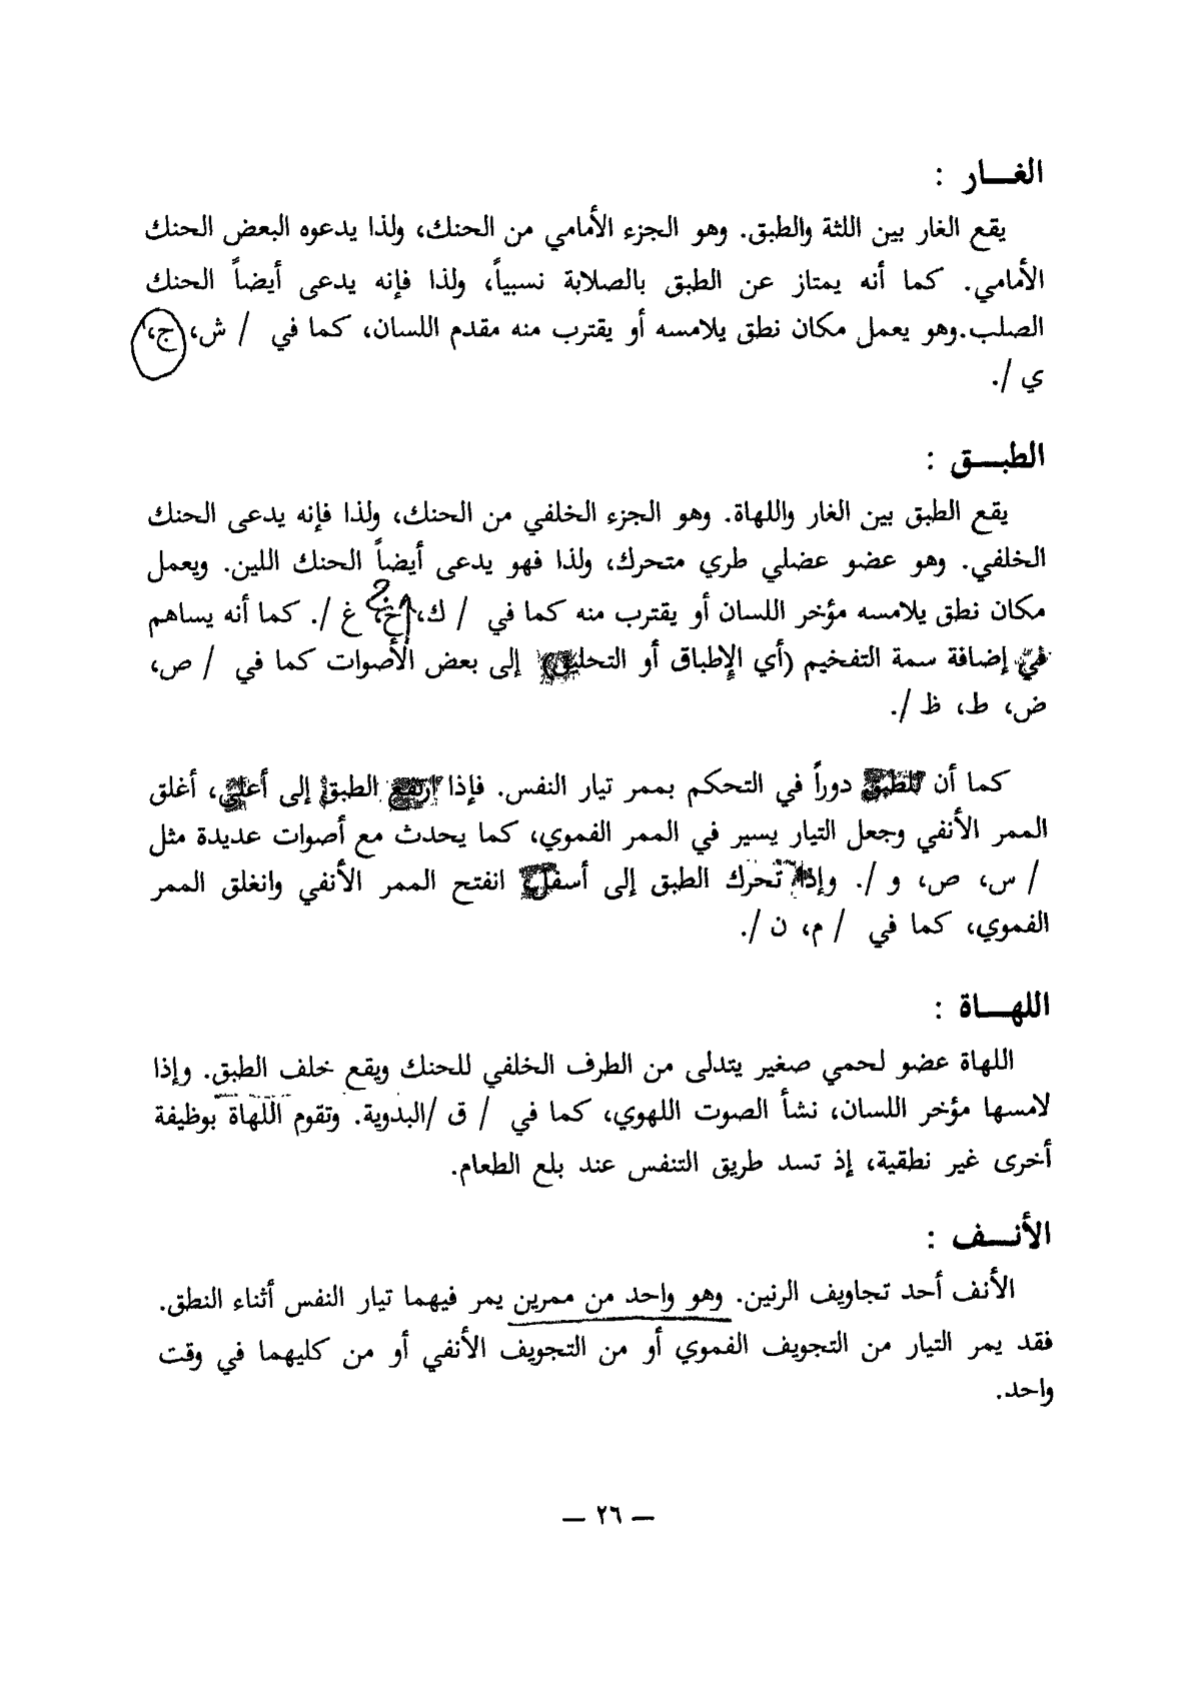 الغـــار :
يقع الغار بين اللثة والطبق. وهو الجزء الأمامي من الحنك، ولذا يدعوه البعض الحنك
الأمامي. كما أنه يمتاز عن الطبق بالصلابة نسبياً، ولذا فإنه يدعى أيضاً الحنك
الصلب.وهو يعمل مكان نطق يلامسه أو يقترب منه مقدم اللسان، كما في / ش، ج،
ي /.
الطبـــق :
يقع الطبق بين الغار واللهاة. وهو الجزء الخلفي من الحنك، ولذا فإنه يدعى الحنك
الخلفي. وهو عضو عضلي طري متحرك، ولذا فهو يدعى أيضاً الحنك اللين. ويعمل
مكان نطق يلامسه مؤخر اللسان أو يقترب منه كما في / ك، خ، غ /. كما أنه يساهم
في إضافة سمة التفخيم (أي الإطباق أو التحليق) إلى بعض الأصوات كما في / ص،
ض، ط، ظ /.
كما أن للطبق دوراً في التحكم بممر تيار النفس. فإذا ارتفع الطبق إلى أعلى، أغلق
الممر الأنفي وجعل التيار يسير في الممر الفموي، كما يحدث مع أصوات عديدة مثل
/ س، ص، و /. وإذا تحرك الطبق إلى أسفل انفتح الممر الأنفي وانغلق الممر
الفموي، كما في / م، ن /.
اللهـــاة :
اللهاة عضو لحمي صغير يتدلى من الطرف الخلفي للحنك ويقع خلف الطبق. وإذا
لامسها مؤخر اللسان، نشأ الصوت اللهوي، كما في / ق /البدوية. وتقوم اللهاة بوظيفة
أخرى غير نطقية، إذ تسد طريق التنفس عند بلع الطعام.
الأنـــف :
الأنف أحد تجاويف الرنين. وهو واحد من ممرين يمر فيهما تيار النفس أثناء النطق.
فقد يمر التيار من التجويف الفموي أو من التجويف الأنفي أو من كليهما في وقت
واحد.
— ٢٦ —